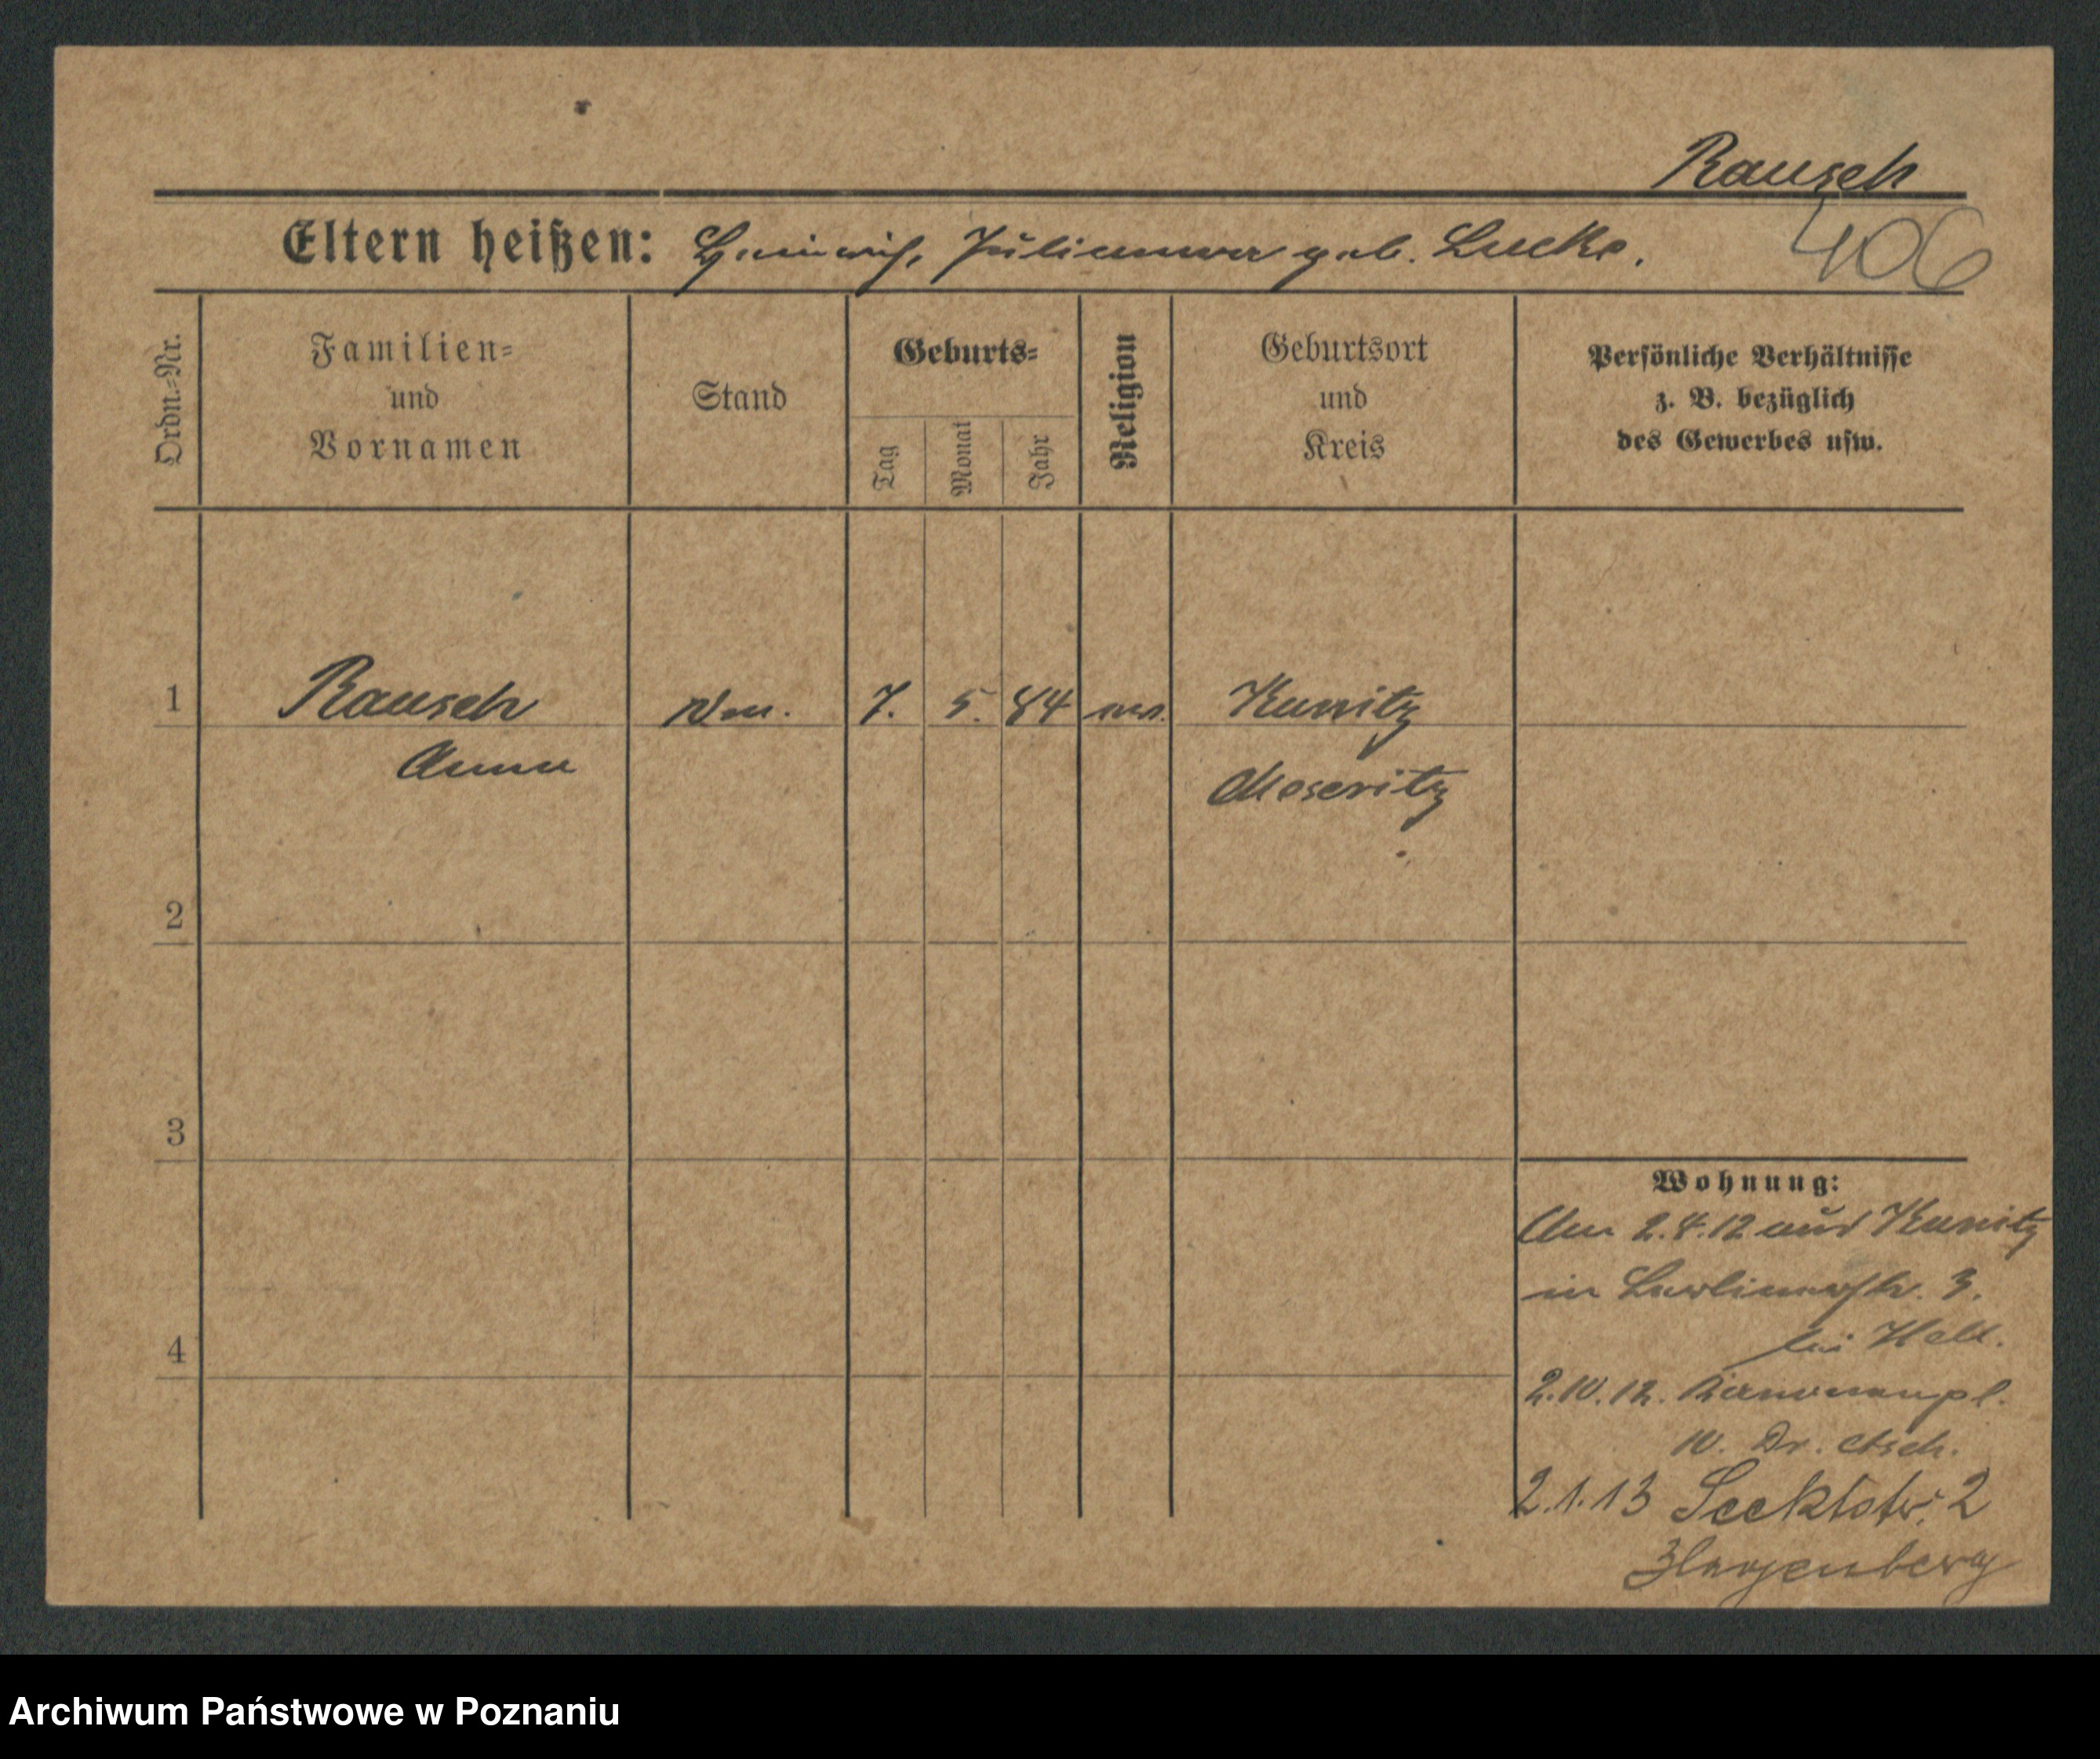 Rausch
Eltern heißen: Heinrich, Julianna geb. Lucke.
406
Ordn.=Nr.
Familien=
und
Vornamen
Stand
Geburts=
Tag
Monat
Jahr
Religion
Geburtsort
und
Kreis
Persönliche Verhältnisse
z. B. bezüglich
des Gewerbes usw.
1 Rausch 7. 5. 84 Kunitz
Anna Meseritz
2
3
Wohnung:
2.4.12 aus Kunitz
in Berlinerstr. 3.
bei
4
2.10.12. Kanonenpl.
10. Dr.
2.1.13 2